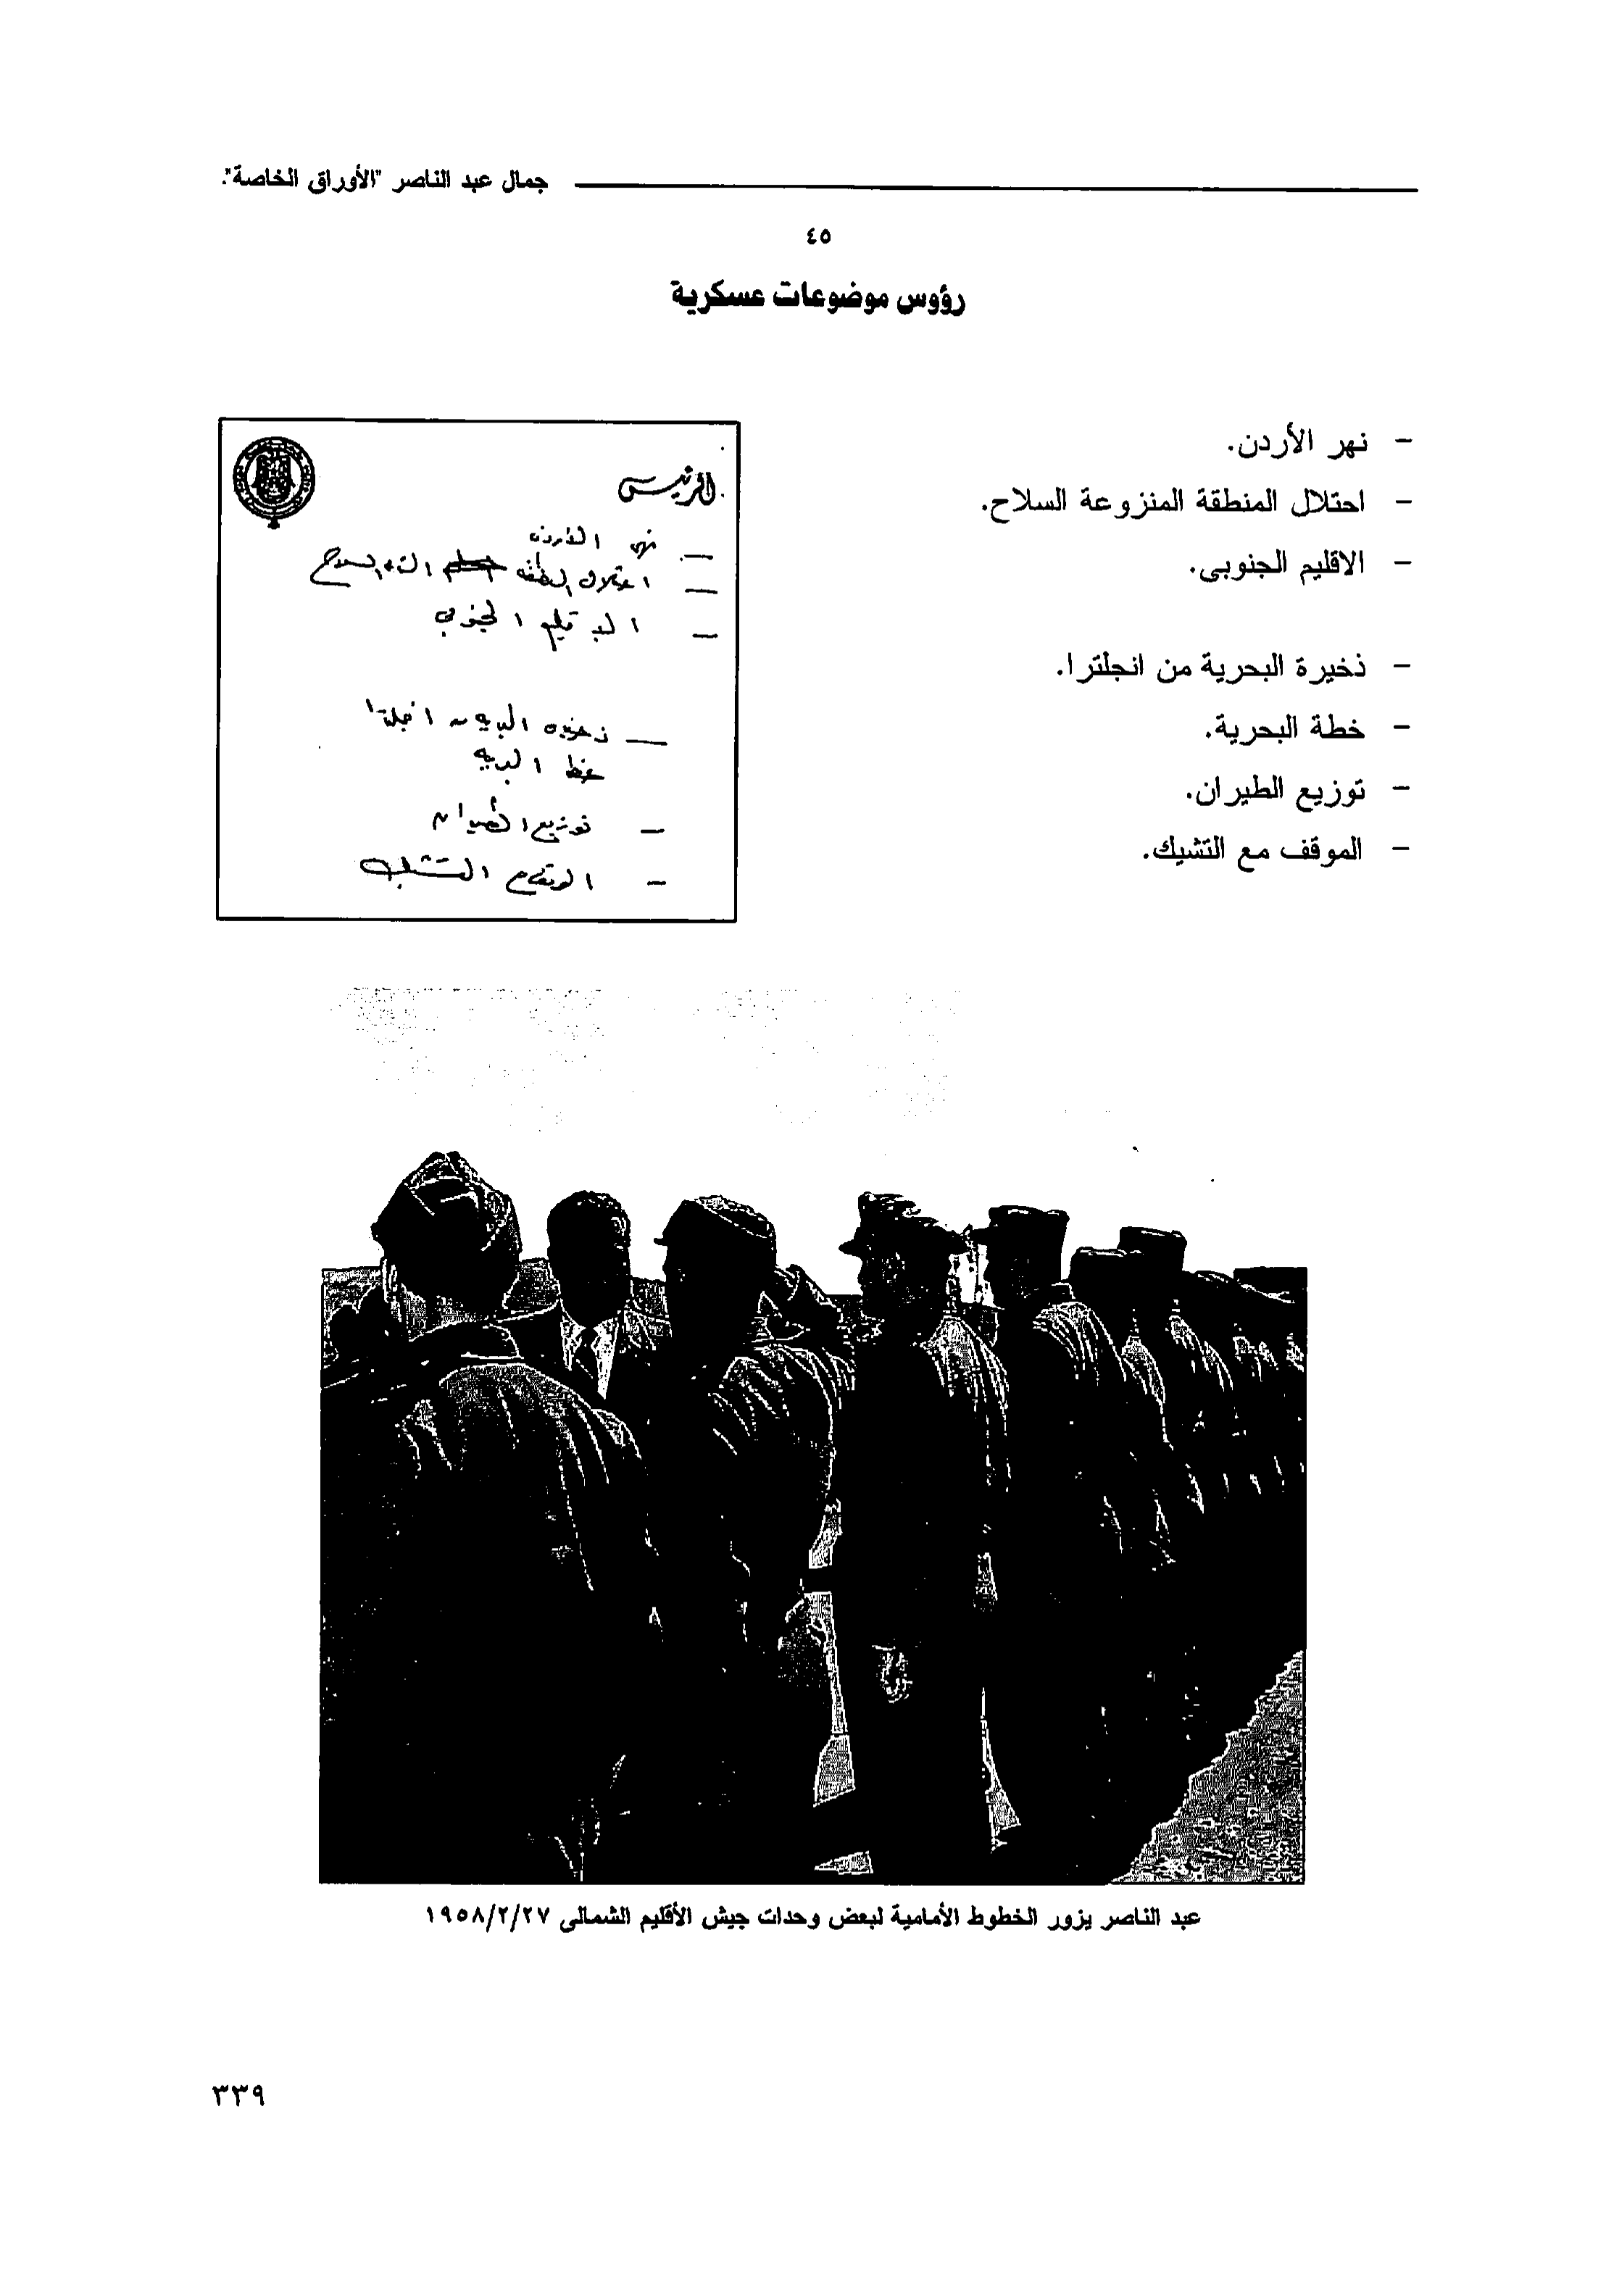 جمال عبد الناصر "الأوراق الخاصة".
٤٥
رؤوس موضوعات عسكرية
- نهر الأردن.
- احتلال المنطقة المنزوعة السلاح.
- الاقليم الجنوبى.
- ذخيرة البحرية من انجلترا.
- خطة البحرية.
- توزيع الطيران.
- الموقف مع التشيك.
الرئيس
— نهر الأردن
— احتلال المنطقة السلاح
— الاقليم الجنوبى
— ذخيرة البحرية من انجلترا
خطة البحرية
— توزيع الطيران
— الموقف مع التشيك
عبد الناصر يزور الخطوط الأمامية لبعض وحدات جيش الأقليم الشمالى ١٩٥٨/٢/٢٧
٣٣٩